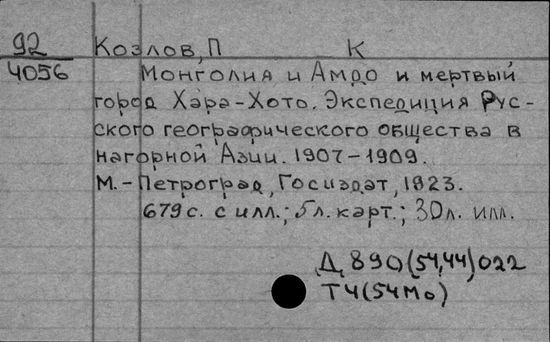 92 Козлов, П К
4056 Монголия и Амдо и мертвый
город Хара-Хото. Экспедиция Рус-
ского географического общества в
нагорной Азии. 1907-1909.
М.-Петроград, Госиздат, 1923.
679 с. с илл.; 5 л. карт.; 30 л. илл.
Д 890(54,44)022
Т4(54Мо)